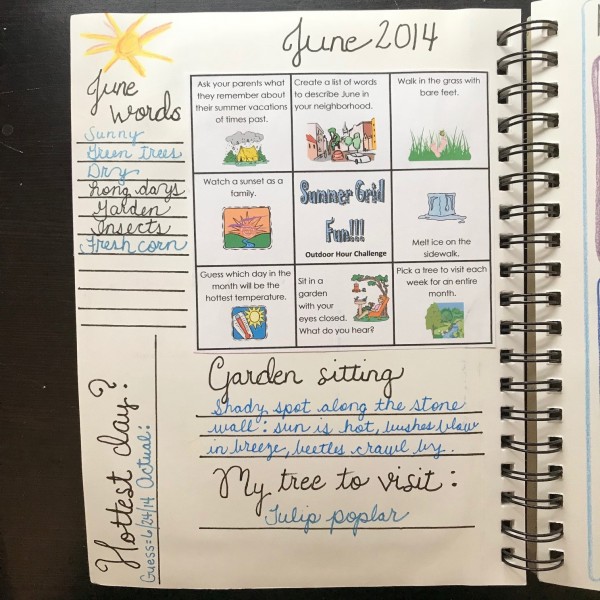 June 2014
June
words
Sunny
Green trees
Dry
Long days
Garden
Insects
Fresh corn
Ask your parents what
they remember about
their summer vacations
of times past.
Create a list of words
to describe June in
your neighborhood.
Walk in the grass with
bare feet.
Watch a sunset as a
family.
Summer Grid
Fun!!!
Outdoor Hour Challenge
Melt ice on the
sidewalk.
Guess which day in the
month will be the
hottest temperature.
Sit in a
garden
with your
eyes closed.
What do you hear?
Pick a tree to visit each
week for an entire
month.
Hottest day?
Guess: 6/24/14 Actual:
Garden sitting
Shady spot along the stone
wall: sun is hot, bushes blow
in breeze, beetles crawl by.
My tree to visit:
Tulip poplar